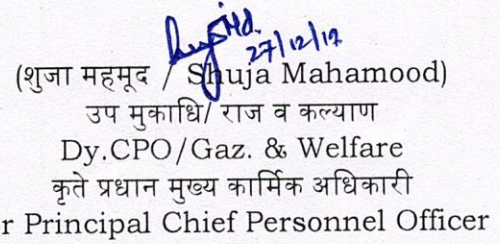 27/12/17
(शुजा महमूद / Shuja Mahamood)
उप मुकाधि/ राज व कल्याण
Dy.CPO/Gaz. & Welfare
कृते प्रधान मुख्य कार्मिक अधिकारी
r Principal Chief Personnel Officer